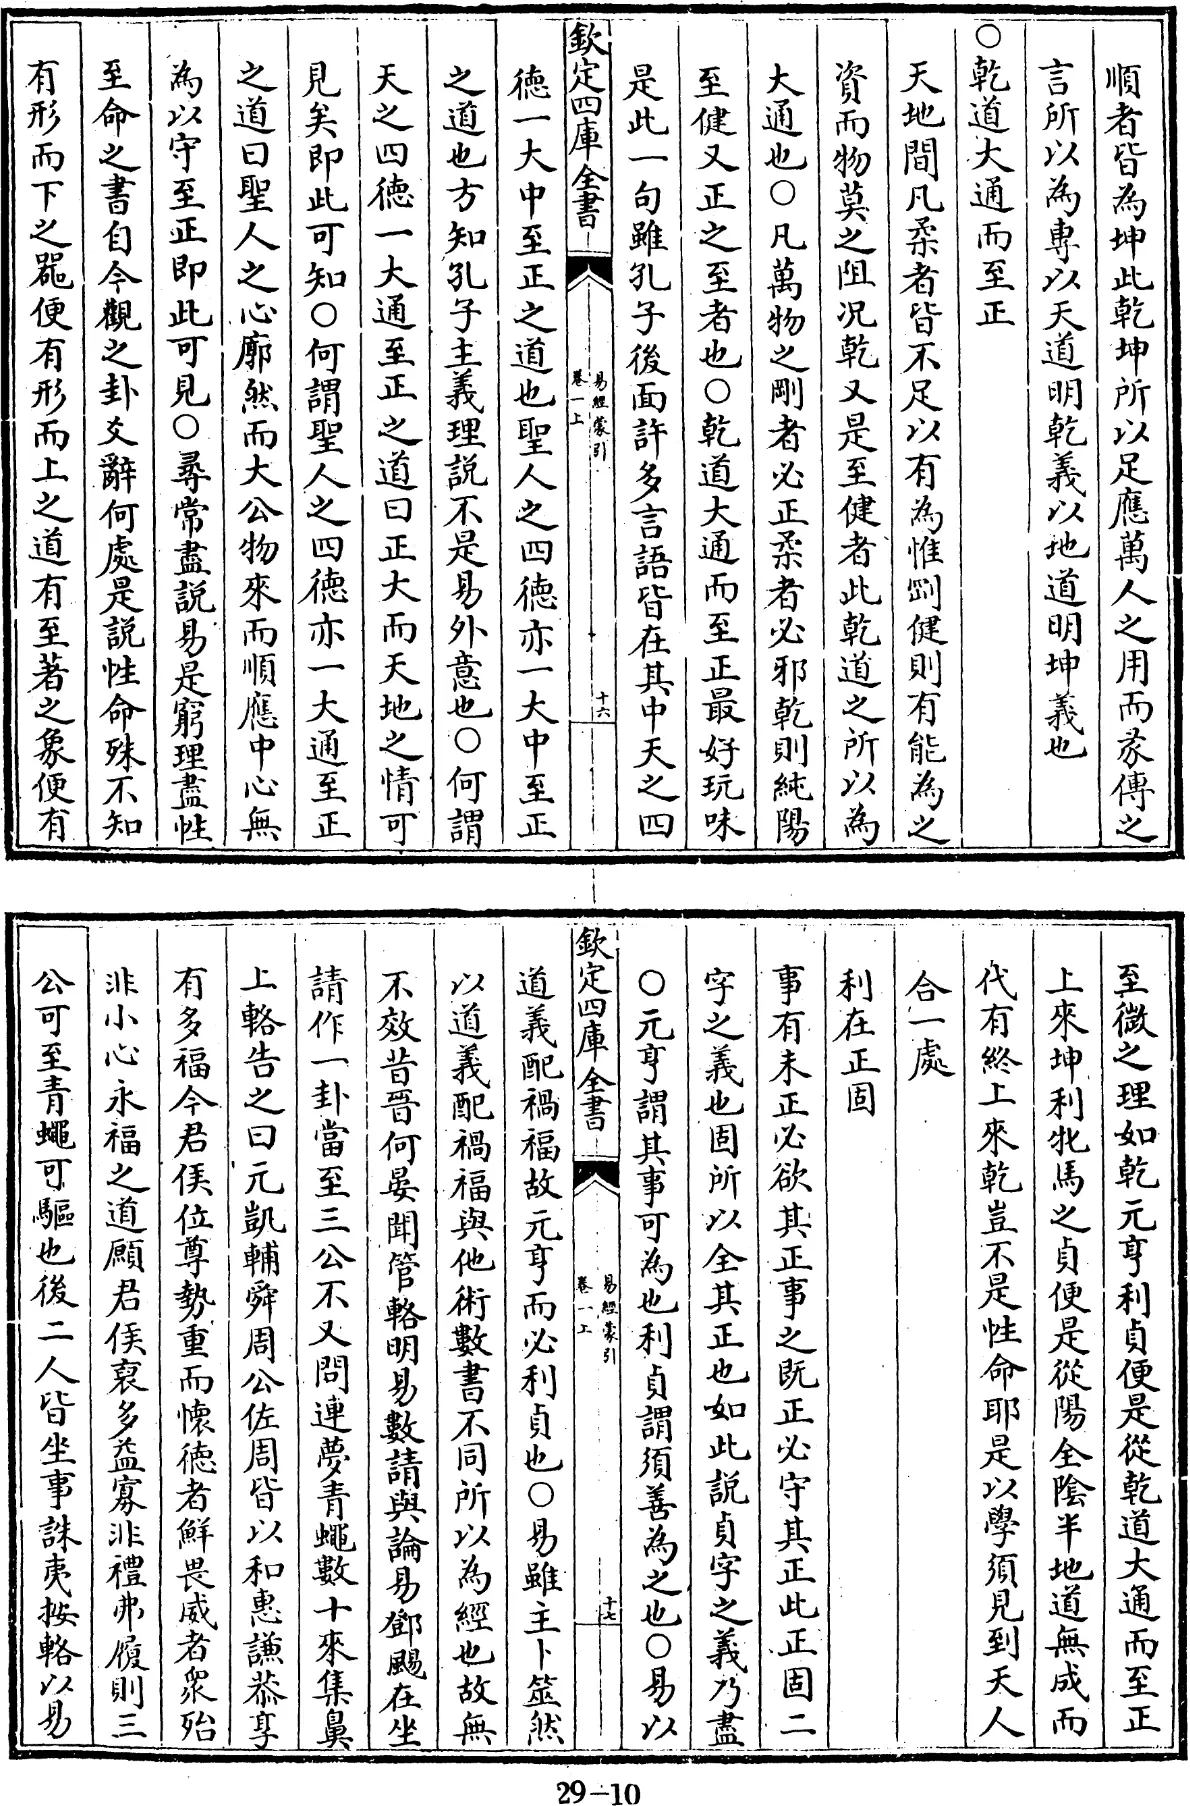 順者皆為坤此乾坤所以足應萬人之用而彖傳之
言所以為專以天道明乾義以地道明坤義也
○乾道大通而至正
天地間凡柔者皆不足以有為惟剛健則有能為之
資而物莫之阻况乾又是至健者此乾道之所以為
大通也○凡萬物之剛者必正柔者必邪乾則純陽
至健又正之至者也○乾道大通而至正最好玩味
是此一句雖孔子後面許多言語皆在其中天之四
欽定四庫全書
易經蒙引
卷一上
十六
德一大中至正之道也聖人之四德亦一大中至正
之道也方知孔子主義理説不是易外意也○何謂
天之四德一大通至正之道曰正大而天地之情可
見矣即此可知○何謂聖人之四德亦一大通至正
之道曰聖人之心廓然而大公物來而順應中心無
為以守至正即此可見○尋常盡説易是窮理盡性
至命之書自今觀之卦爻辭何處是説性命殊不知
有形而下之器便有形而上之道有至著之象便有
至微之理如乾元亨利貞便是從乾道大通而至正
上來坤利牝馬之貞便是從陽全陰半地道無成而
代有終上來乾豈不是性命耶是以學須見到天人
合一處
利在正固
事有未正必欲其正事之既正必守其正此正固二
字之義也固所以全其正也如此説貞字之義乃盡
○元亨謂其事可為也利貞謂須善為之也○易以
欽定四庫全書
易經蒙引
卷一上
十七
道義配禍福故元亨而必利貞也○易雖主卜筮然
以道義配禍福與他術數書不同所以為經也故無
不效昔晉何晏聞管輅明易數請與論易鄧颺在坐
請作一卦當至三公不又問連夢青蠅數十來集鼻
上輅告之曰元凱輔舜周公佐周皆以和惠謙恭享
有多福今君侯位尊勢重而懷德者鮮畏威者衆殆
非小心永福之道願君侯裒多益寡非禮弗履則三
公可至青蠅可驅也後二人皆坐事誅夷按輅以易
29-10